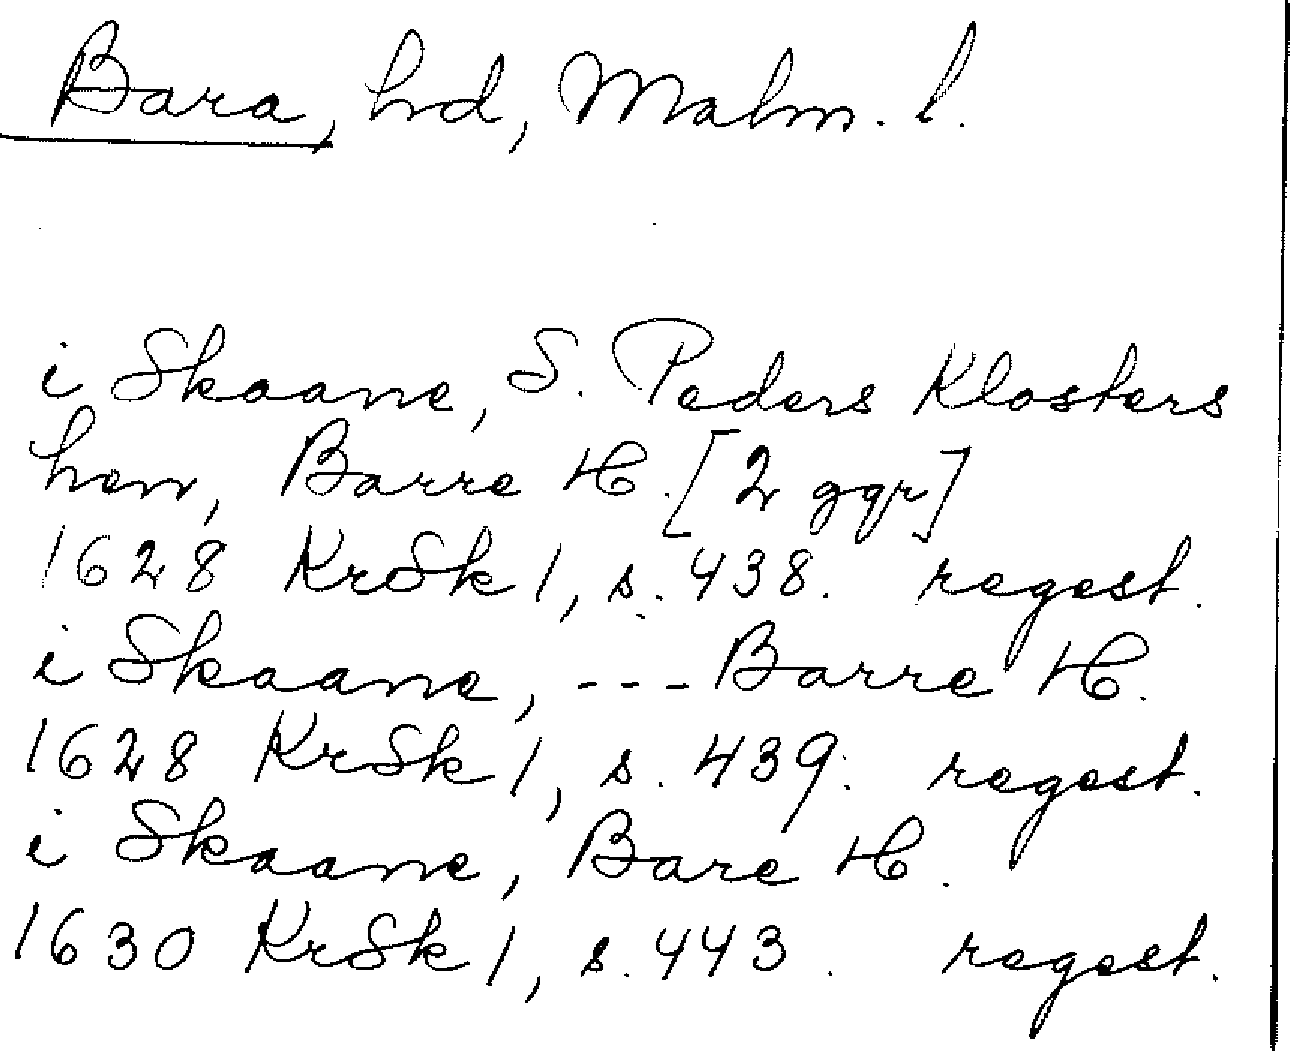 Bara, hd, Malm. l.
i Skaane, S. Peders Klosters
len, Barre H. [2 ggr]
1628 KrSk 1, s. 438. regest.
i Skaane, --- Barre H.
1628 KrSk 1, s. 439. regest.
i Skaane, Bare H.
1630 KrSk 1, s. 443. regest.